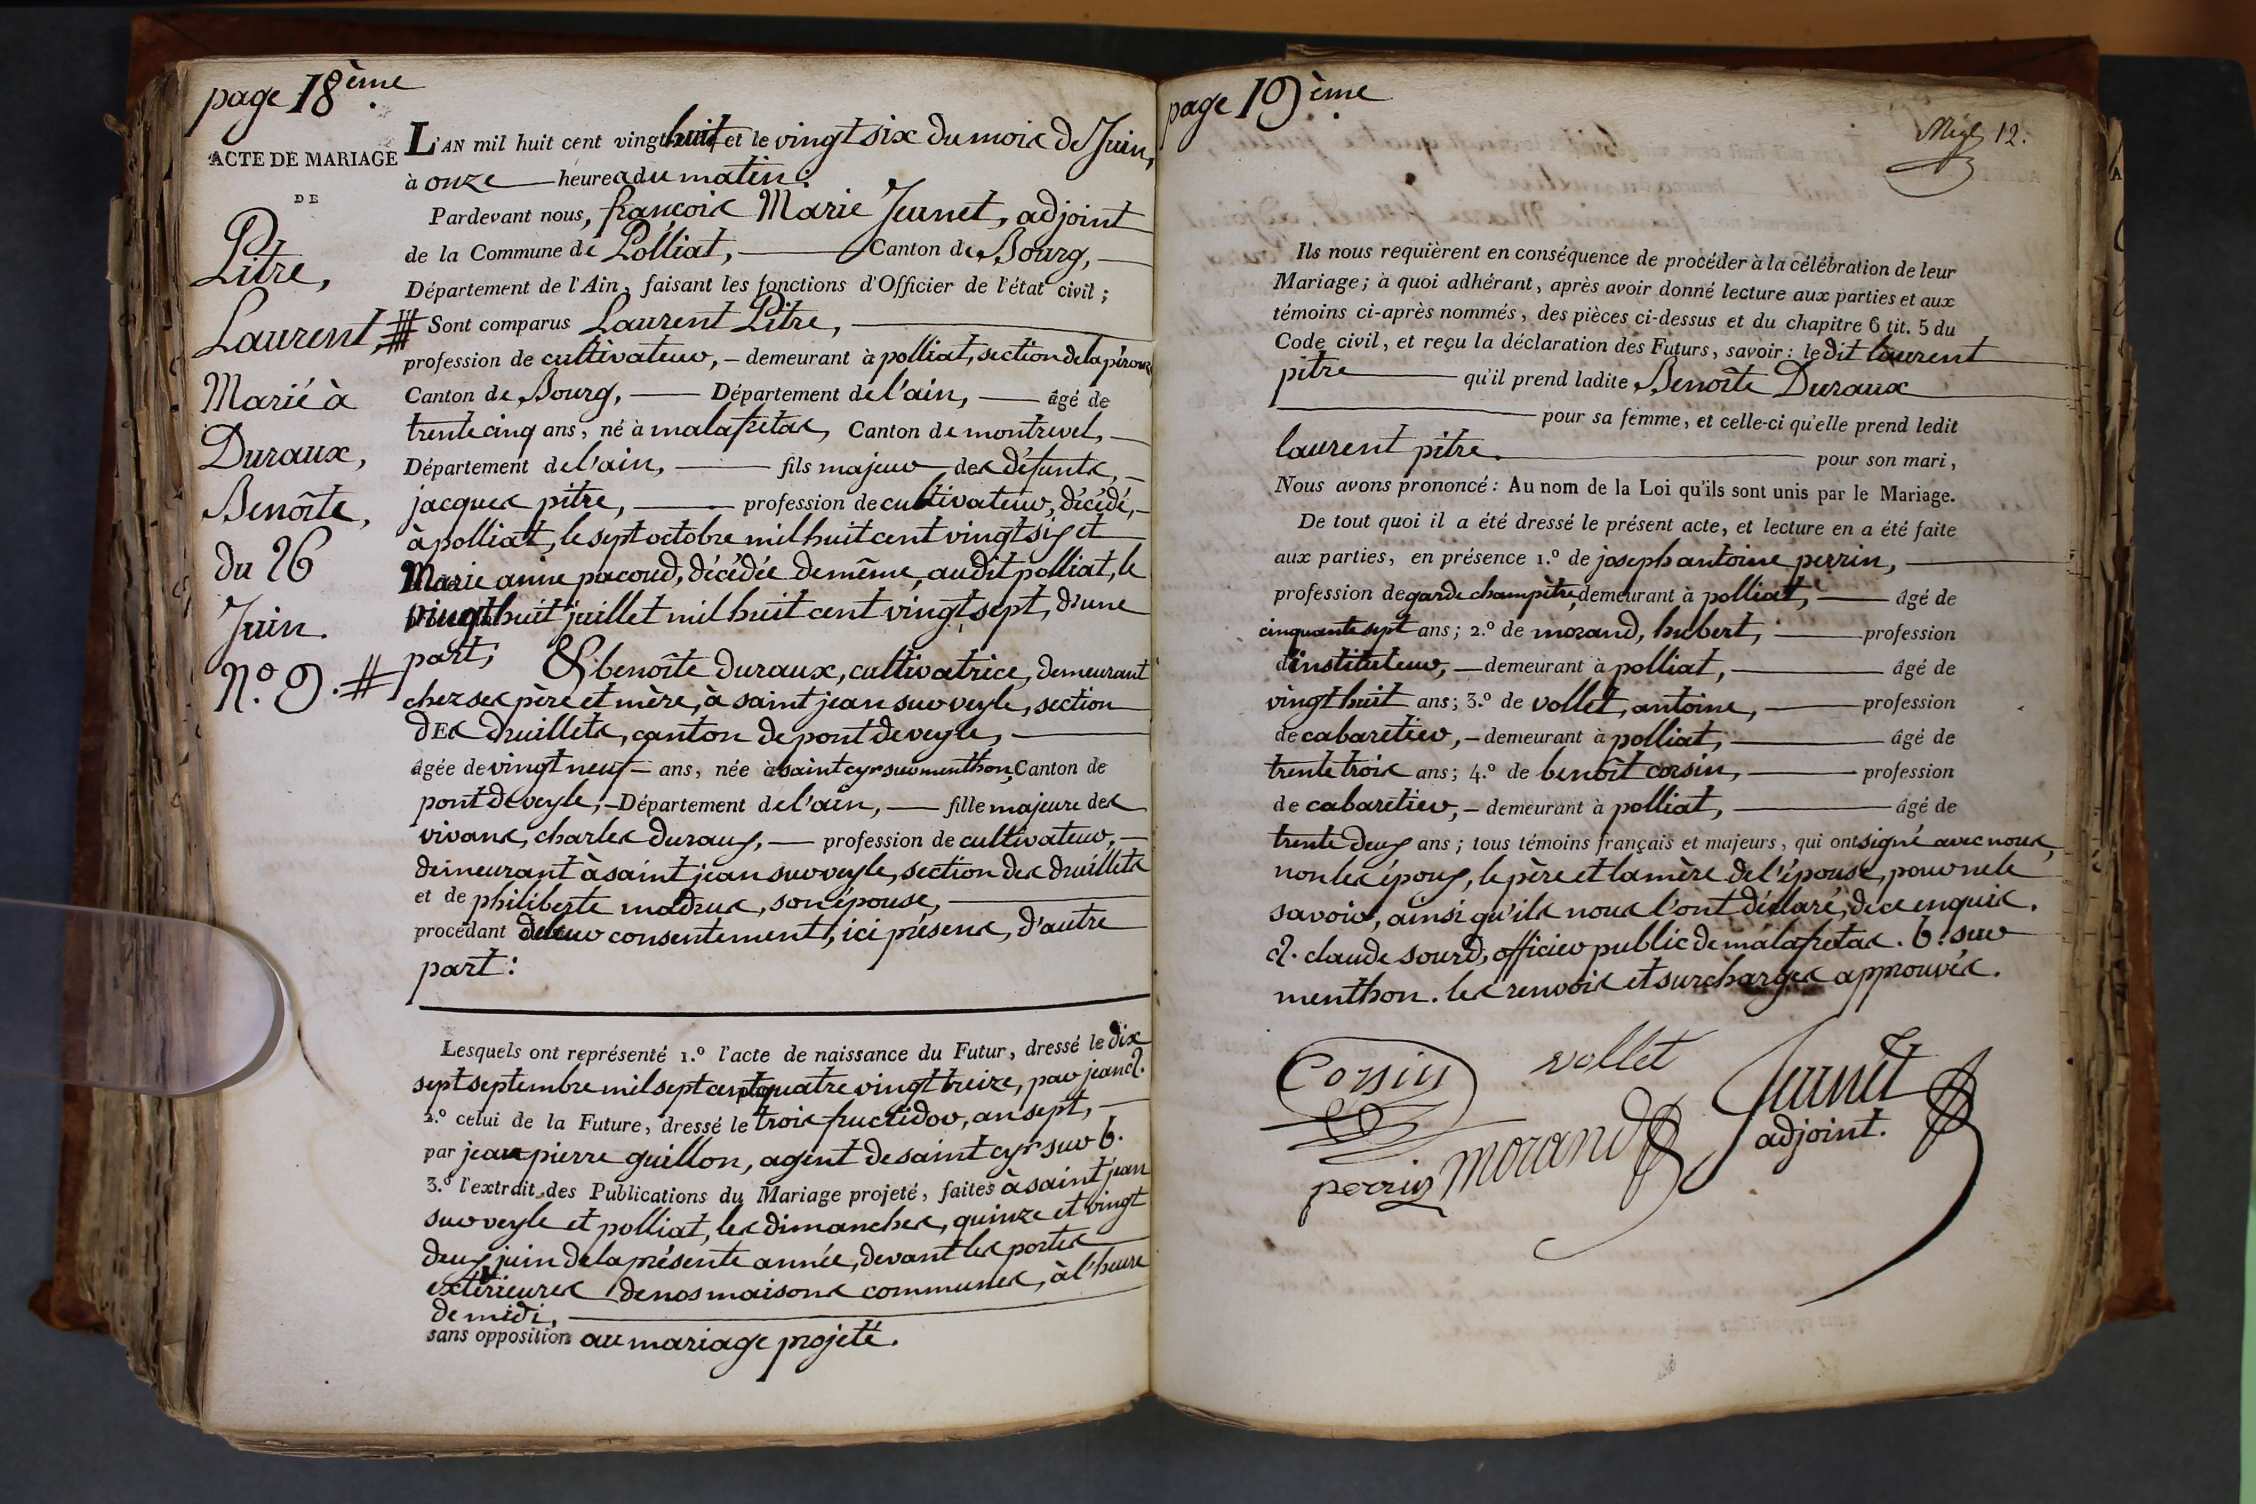 page 18ème.
ACTE DE MARIAGE
DE
Pitre,
Laurent,
Marié à
Duraux,
Benoîte,
du 26
Juin.
N.º 9.
L'AN mil huit cent vingt huit et le vingt six du mois de Juin,
à onze heures du matin.
Pardevant nous, françois Marie Jeunet, adjoint
de la Commune de Polliat, Canton de Bourg,
Département de l'Ain, faisant les fonctions d'Officier de l'état civil ;
Sont comparus Laurent Pitre,
profession de cultivateur, demeurant à polliat, section de la pérouze
Canton de Bourg, Département de l'ain, âgé de
trente cinq ans, né à malafretas, Canton de montrevel,
Département de l'ain, fils majeur des défunts,
jacques pitre, profession de cultivateur, décédé,
à polliat, le sept octobre mil huit cent vingt six et
Marie anne pacoud, décédée de même, audit polliat, le
vingt huit juillet mil huit cent vingt sept, d'une
part; & benoîte duraux, cultivatrice, demeurant
chez ses père et mère, à saint jean sur veyle, section
des druillets, canton de pont de veyle,
âgée de vingt neuf ans, née à saint cyr sur menthon, Canton de
pont de veyle, Département de l'ain, fille majeure des
vivans, charles duraux, profession de cultivateur,
demeurant à saint jean sur veyle, section des druillets
et de philiberte madrus, son épouse,
procédant de leur consentement, ici présens, d'autre
part :
Lesquels ont représenté 1.º l'acte de naissance du Futur, dressé le dix
sept septembre mil sept cent quatre vingt treize, par jean cl.
2.º celui de la Future, dressé le trois fructidor, an sept,
par jean pierre guillon, agent de saint cyr sur b.
3.º l'extrait des Publications du Mariage projeté, faites à saint jean
sur veyle et polliat, les dimanches, quinze et vingt
deux juin de la présente année, devant les portes
extérieures de nos maisons communes, à l'heure
de midi,
sans opposition au mariage projeté.
page 19ème.
12.
Ils nous requièrent en conséquence de procéder à la célébration de leur
Mariage ; à quoi adhérant, après avoir donné lecture aux parties et aux
témoins ci-après nommés, des pièces ci-dessus et du chapitre 6 tit. 5 du
Code civil, et reçu la déclaration des Futurs, savoir : le dit laurent
pitre qu'il prend ladite Benoîte Duraux
pour sa femme, et celle-ci qu'elle prend ledit
laurent pitre. pour son mari,
Nous avons prononcé : Au nom de la Loi qu'ils sont unis par le Mariage.
De tout quoi il a été dressé le présent acte, et lecture en a été faite
aux parties, en présence 1.º de joseph antoine perrin,
profession de garde champêtre, demeurant à polliat, âgé de
cinquante sept ans ; 2.º de morand, hubert, profession
d'instituteur, demeurant à polliat, âgé de
vingt huit ans ; 3.º de vollet, antoine, profession
de cabaretier, demeurant à polliat, âgé de
trente trois ans ; 4.º de benoît corsin, profession
de cabaretier, demeurant à polliat, âgé de
trente deux ans ; tous témoins français et majeurs, qui ont signé avec nous,
non les époux, le père et la mère de l'épouse, pour ne le
savoir, ainsi qu'ils nous l'ont déclaré, de ce enquis.
cl. claude sourd, officier public de malafretas. b. sur
menthon. les renvois et surcharges approuvés.
Corsin vollet Jeunet
adjoint.
perrin morand